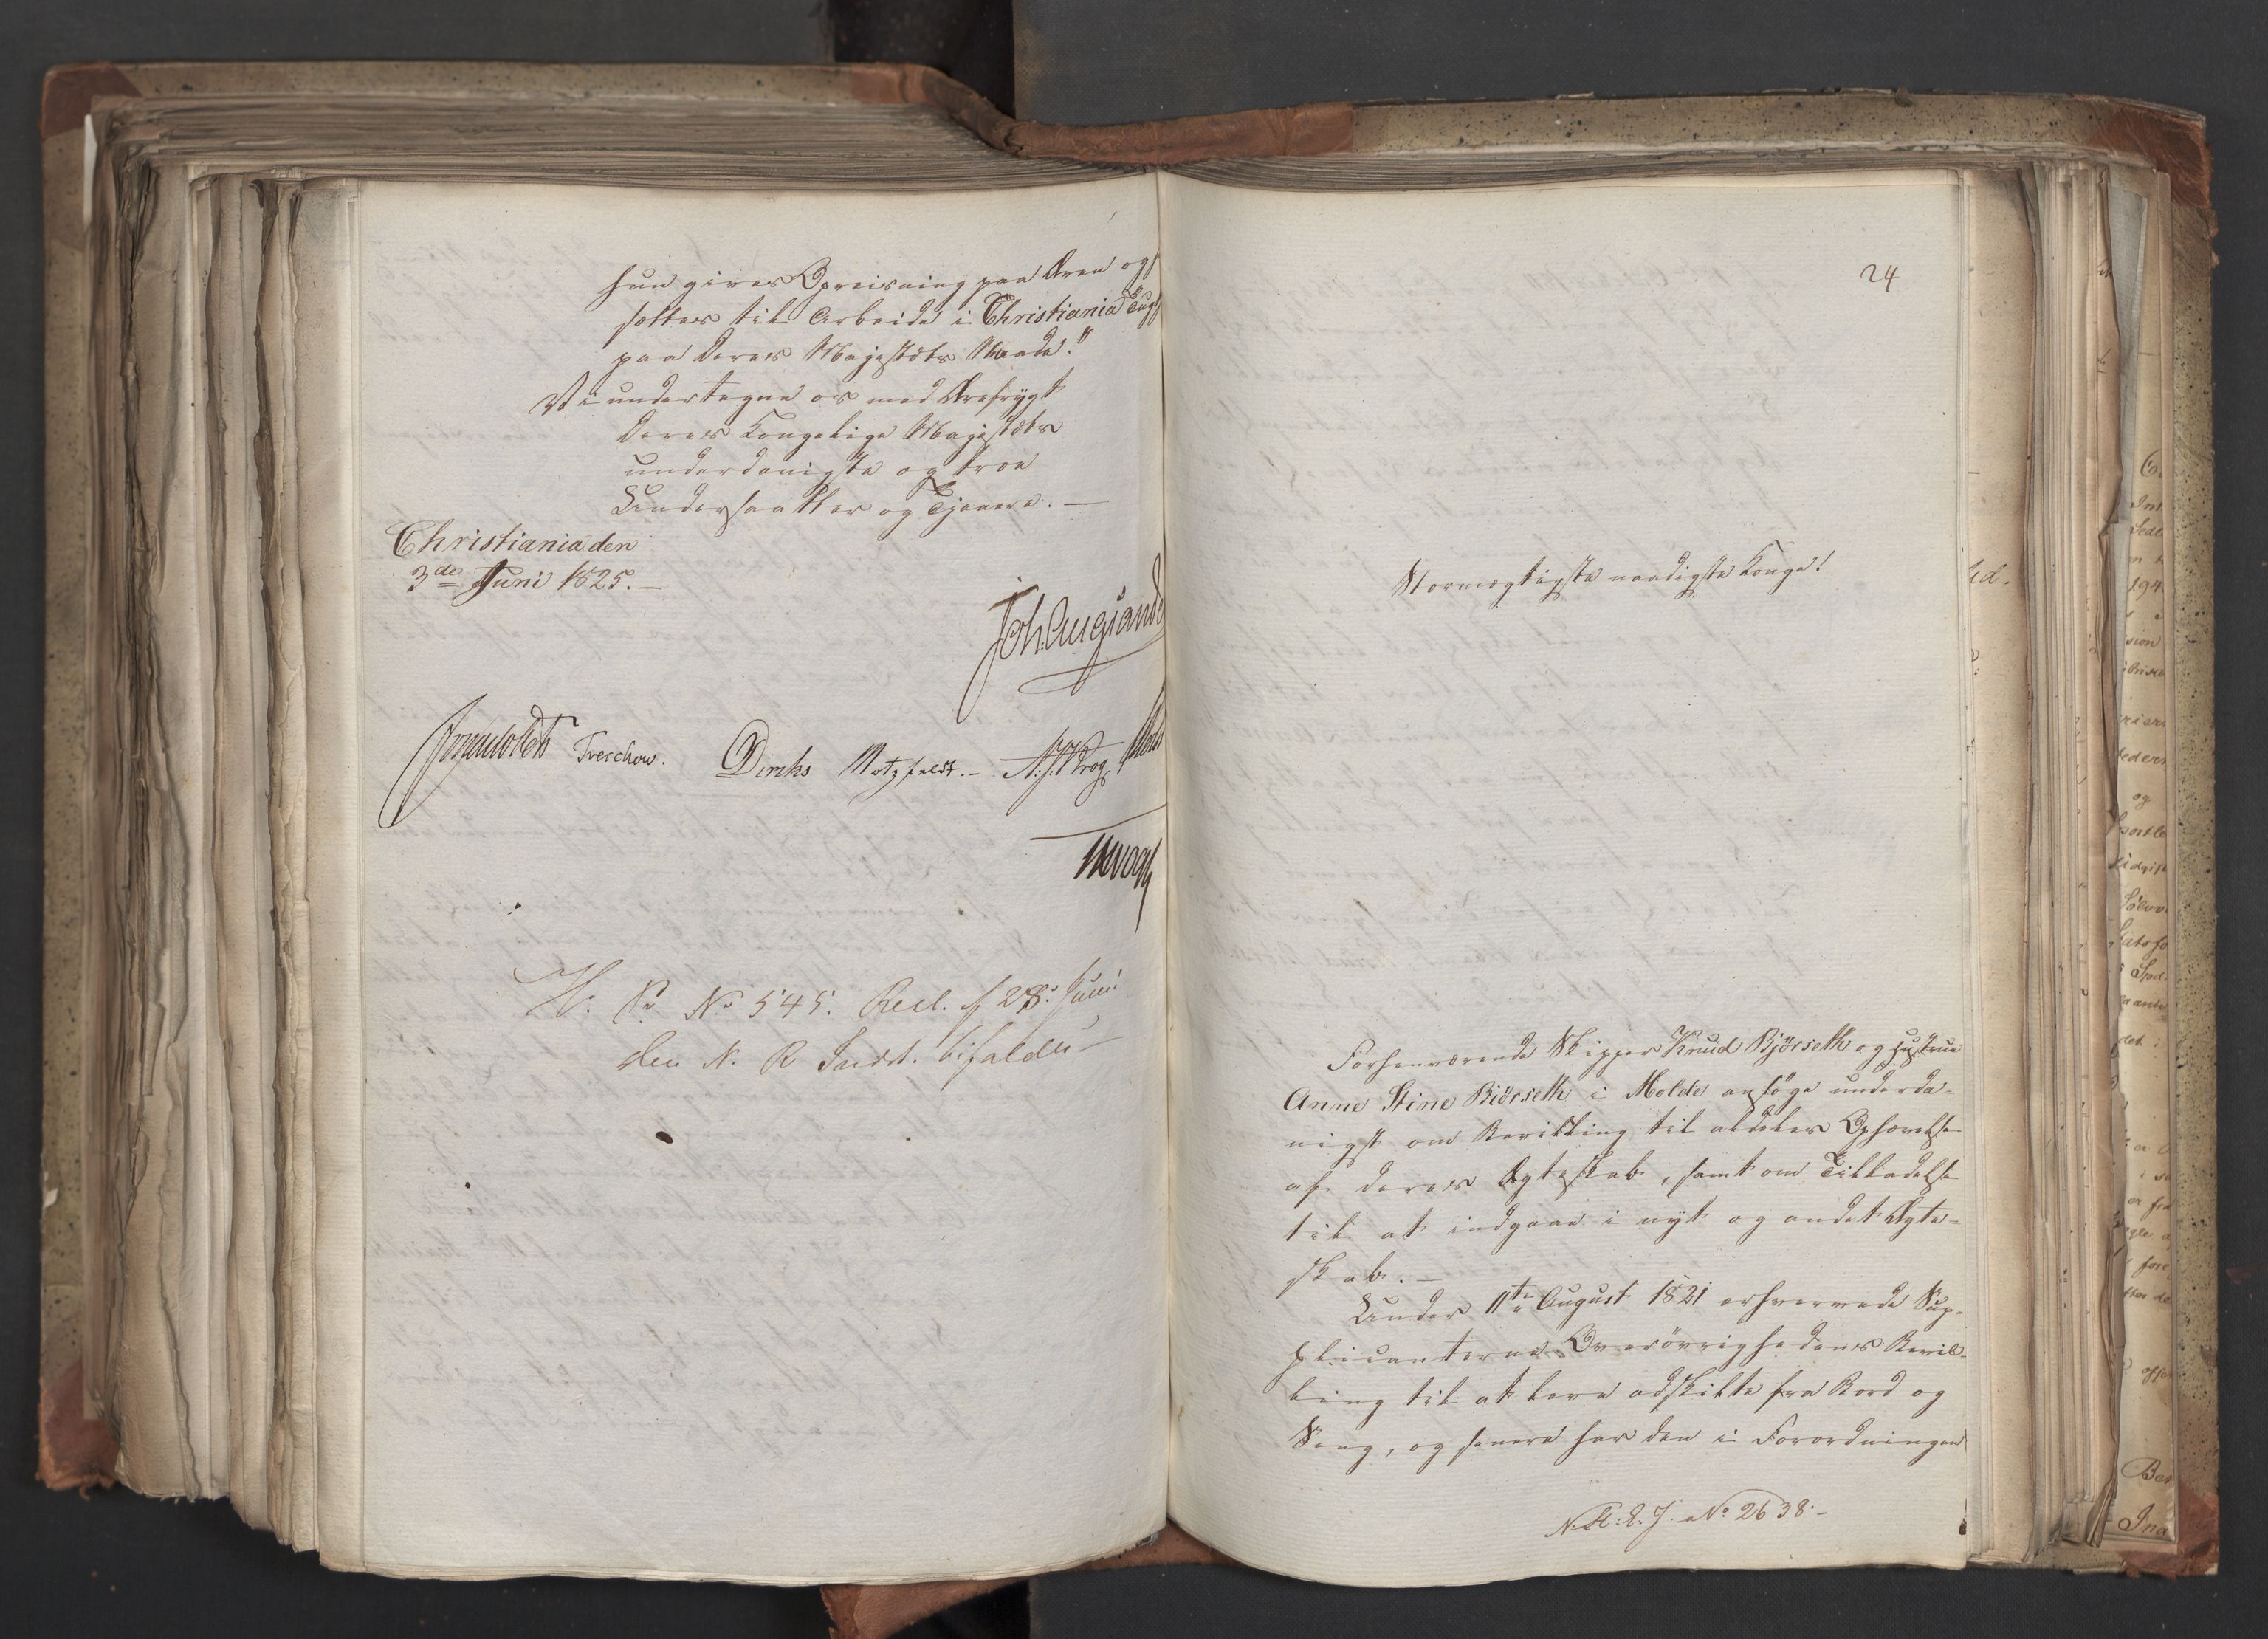 hun gives Opreisning paa Æren og
sættes til Arbeide i Christiania Tugt
paa Deres Majestæts Naade."
Vi undertegne os med Ærefrygt
Deres Kongelige Majestæts
underdanigste og troe
Undersaatter og Tjenere. —
Christiania den
3de Juni 1825. —
Joh. Aug. Sande
Treschow. Diriks Motzfeldt. —
No 545. Recl. 28: Juni
den N. R Indst. bifaldes —
24
Stormægtigste naadigste Konge!
Forhenværende Skipper Knud Björseth og Hustrue
Anne Stine Biörseth i Molde ansöge underda-
nigst om Bevilling til aldeles Ophævelse
af deres Ægteskab, samt om Tilladelse
til at indgaae i nyt og andet Ægte-
skab. —
Under 11te August 1821 erhvervede Sup-
plicanterne Overövrighedens Bevil-
ling til at leve adskilte fra Bord og
Seng, og senere har den i Forordningen
No 2638. —